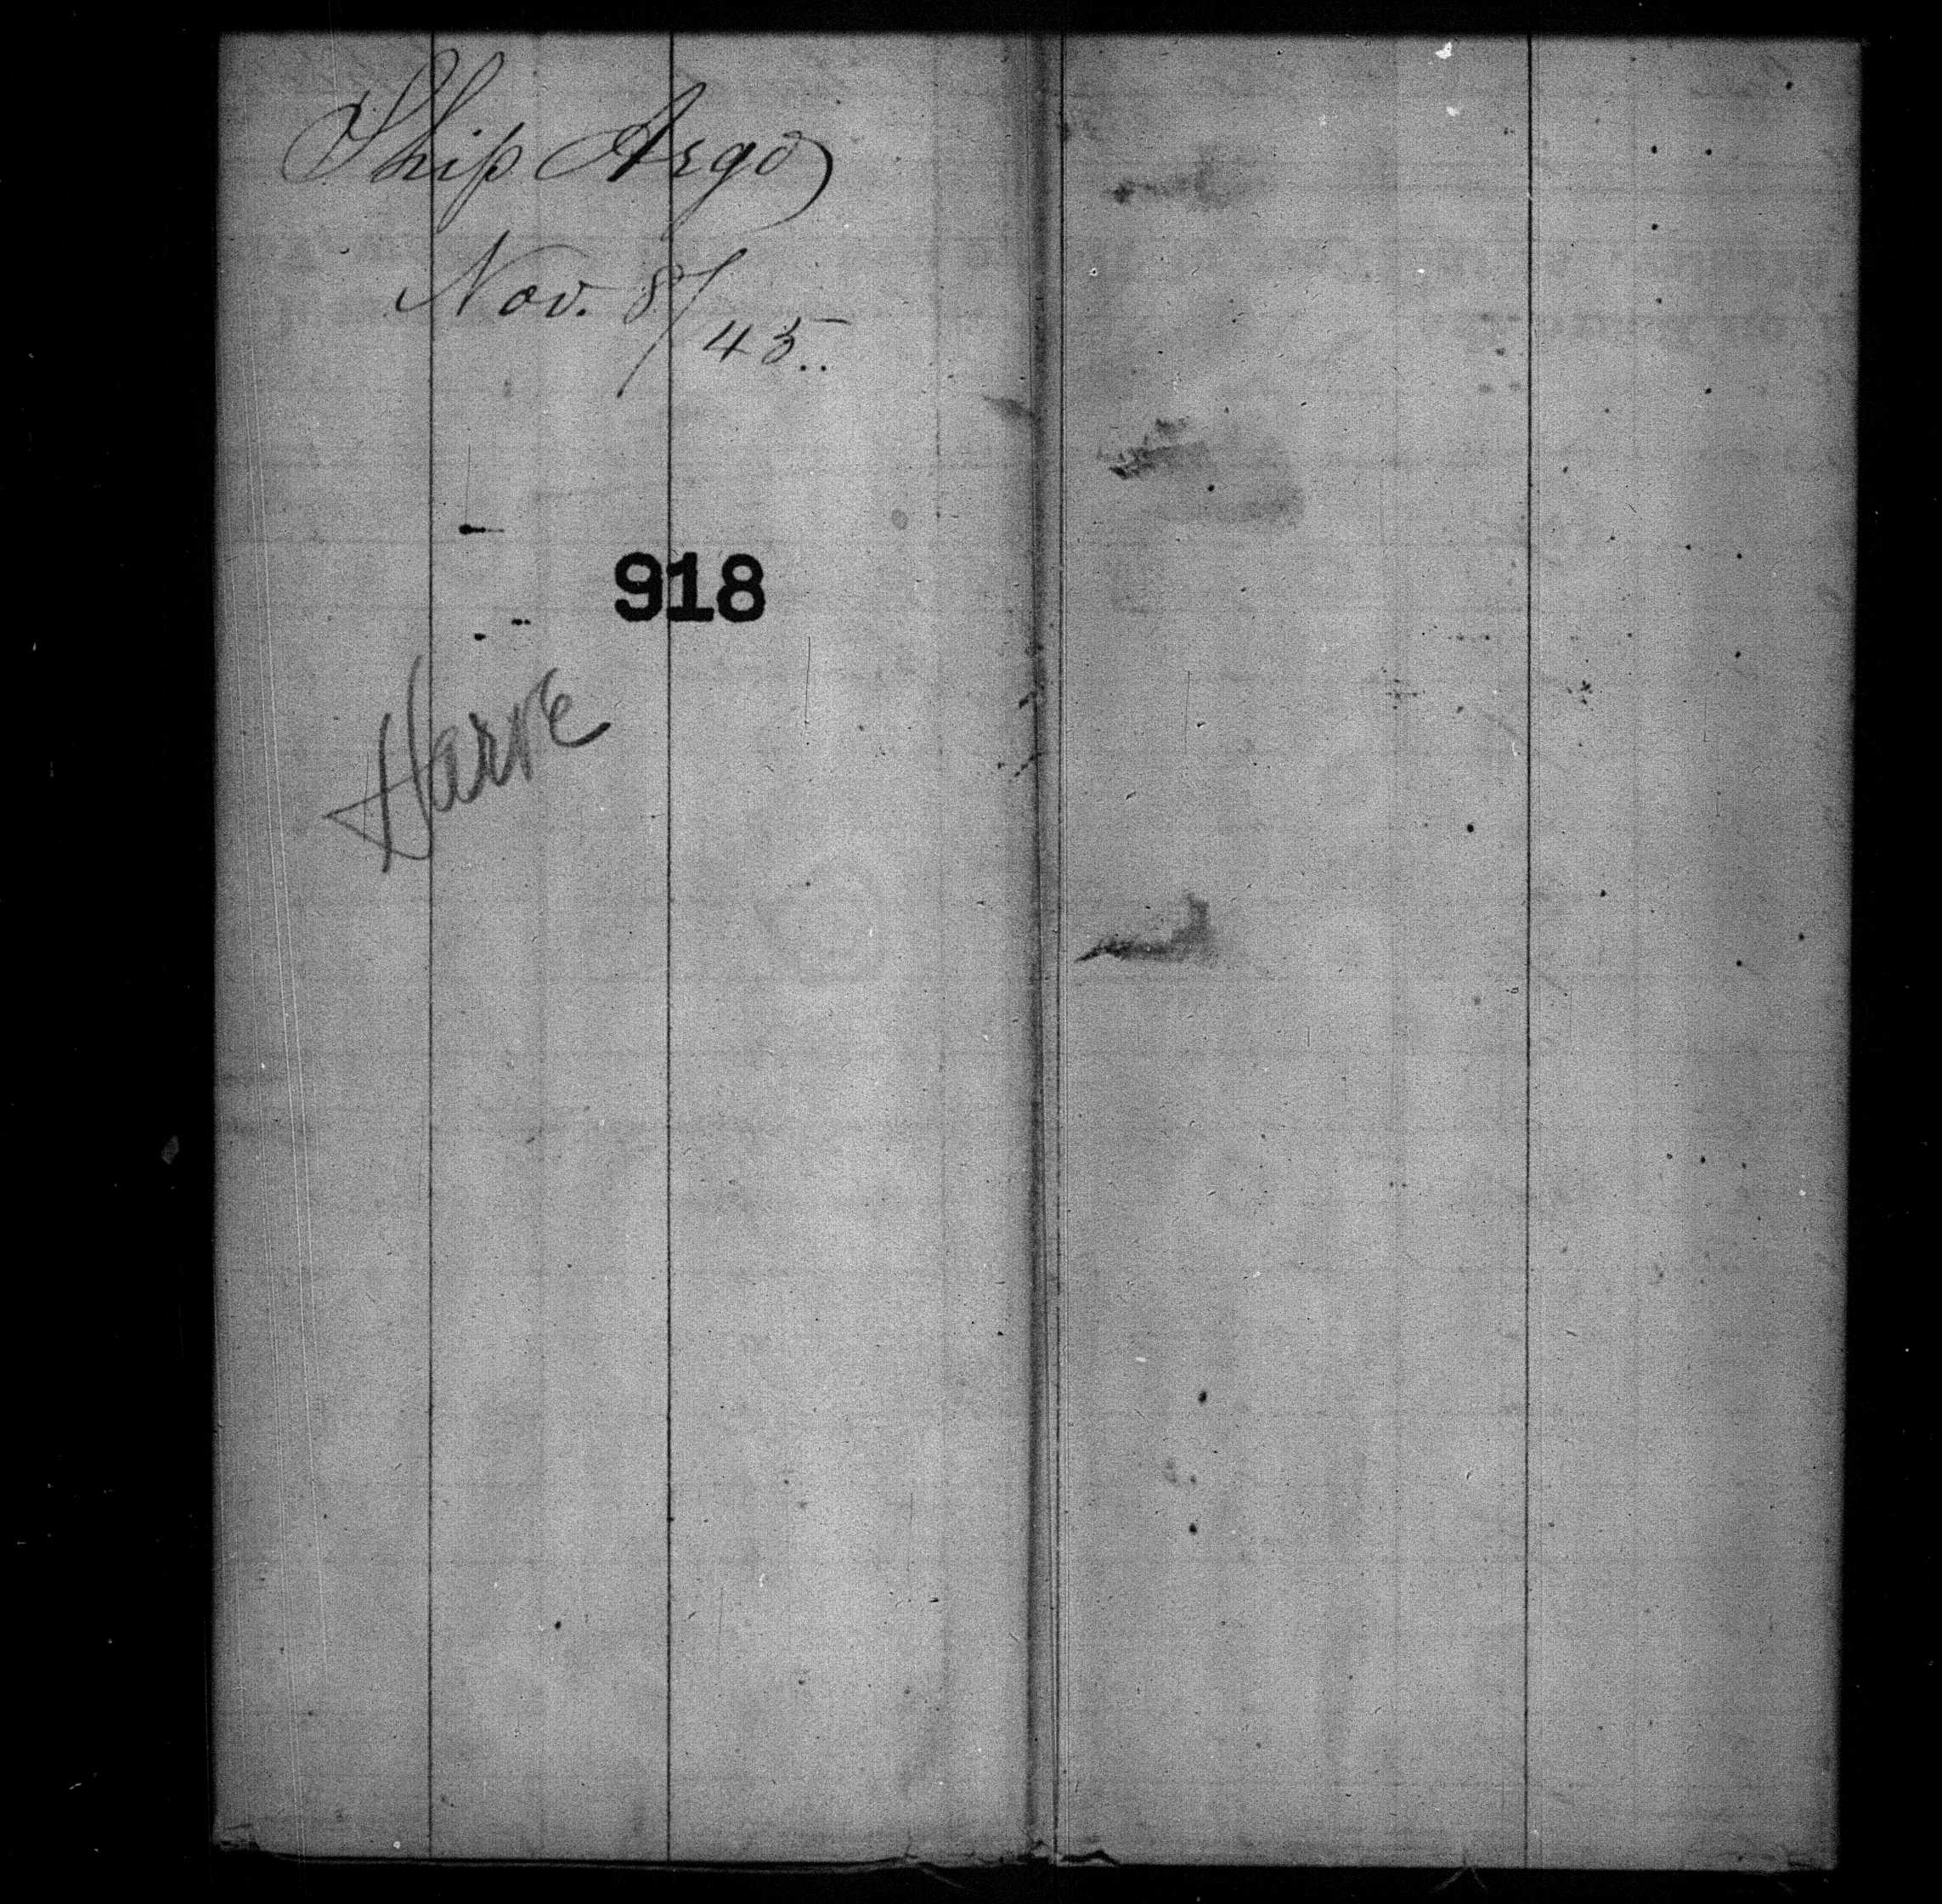 Ship Argo
Nov. 8/45..
918
Harve